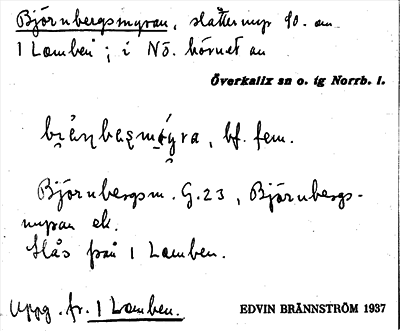 Björnbergsmyran, slåttermyr SO. om
1 Lamben; i NÖ. hörnet av
Överkalix sn o. tg Norrb. l.
bf. fem.
Björnbergsm. G.23, Björnbergs-
myran ek.
Slås från 1 Lamben.
Uppg. fr. 1 Lamben.
EDVIN BRÄNNSTRÖM 1937